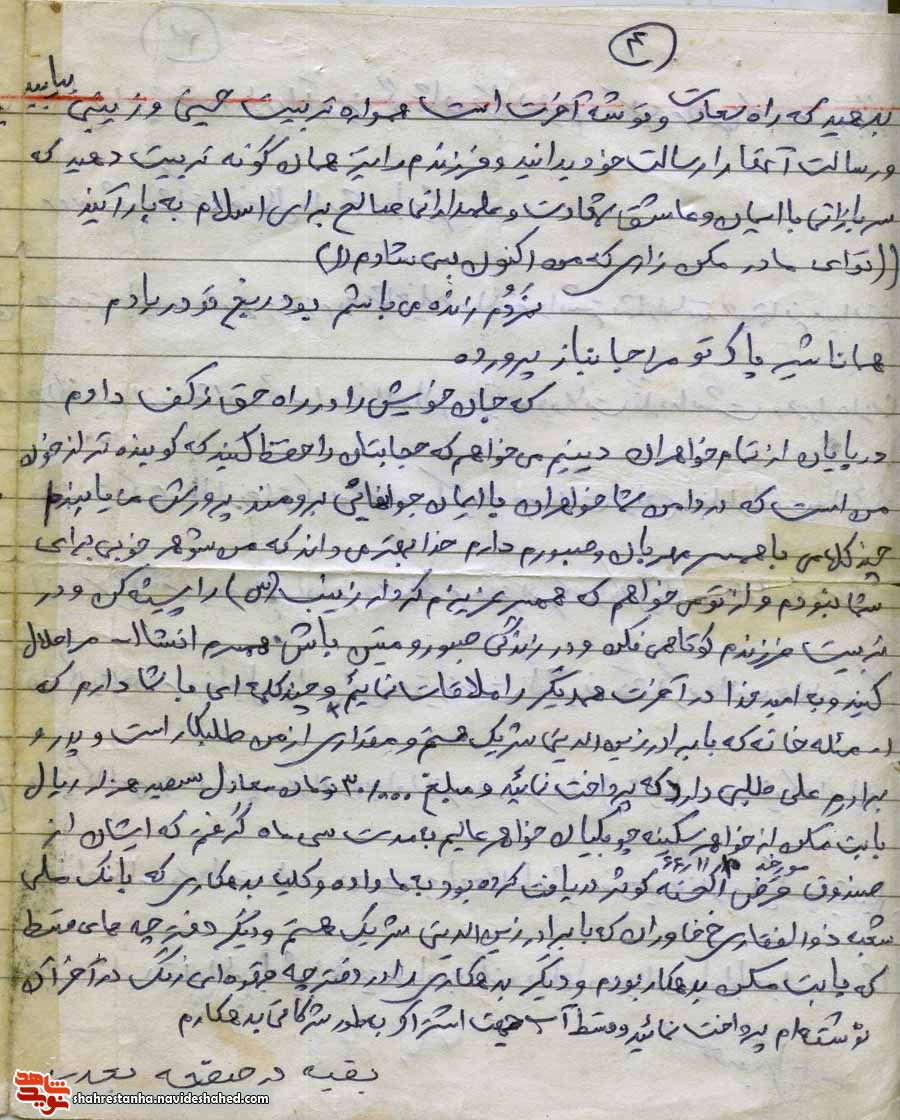 ۴
بدهید که راه سعادت و توشه آخرت است همواره تربیت حسینی و زینبی بیابید
و رسالت آنها را رسالت خود بدانید و فرزندم را نیز همان گونه تربیت دهید که
سربازانی با ایمان و عاشق شهادت و علمدارانی صالح برای اسلام به بار آیند
((توای مادر مکن زاری که من اکنون بسی شادم))
نمردم زنده می باشم بود دریغ تو در یادم
همانا شیر پاک تو مرا جانباز پرورده
که جان خویش را در راه حق ز کف دادم
در پایان از تمام خواهران دینیم می خواهم که حجابتان را حفظ کنید که کوبنده تر از خون
من است که در دامن شما خواهران با ایمان جوانهائی برومند پرورش می یابند
چند کلامی با همسر مهربان و صبورم دارم خدا بهتر می داند که من شوهر خوبی برای
شما نبودم و از تو می خواهم که همسر عزیزم کردار زینب (س) را پیشه کن و در
تربیت فرزندم کوتاهی نکن و در زندگی صبور و متین باش همسرم انشاا... مرا حلال
کنید و به امید خدا در آخرت همدیگر را ملاقات نمائیم و چند کلمه ای با شما دارم که
مسئله خانه که با برادر زین الدینی شریک هستم و مقداری از من طلبکار است و پدر و
برادرم علی طلبی دارد که پرداخت نمائید و مبلغ ۳۰/۰۰۰ تومان معادل سیصد هزار ریال
بابت مسکن از خواهر سکینه چوبکیان خواهر عیالم به مدت سی ماه گرفتم که ایشان از
صندوق قرض الحسنه کوثر مورخه ۶۶/۱۱ دریافت کرده بود به ما داده و کلیه بدهکاری که بانک ملی
شعبه ذوالفقاری خ خاوران که با برادر زین الدینی شریک هستم و دیگر دفترچه های قسط
که بابت مسکن بدهکار بودم و دیگر بدهکاری را در دفترچه قهوه ای رنگ در آخر آن
نوشته ام پرداخت نمائید و قسط آب جهت اشتراک به طور شراکتی بدهکارم
بقیه در صفحه بعد
شاهد
نوید
shahrestanha.navideshahed.com